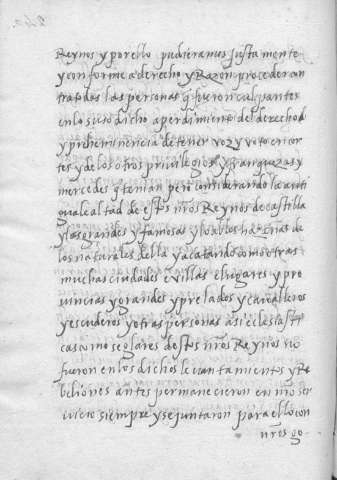 Reynos y por ello pudieramos justamente
y conforme a derecho y Razon proceder con
tra todas las personas q̃ fueron culpantes
en lo suso dicho a perdimiento del derecho d
y preheminencia de tener voz y voto en cor
tes y de los otros privilegios y franquezas y
mercedes q̃ tenian pero considerando la anti
gua lealtad de estos nr̃os Reynos de castilla
y las grandes y famosas y loables hazañas de
los naturales della y acatando como otras
muchas ciudades e villas e lugares y pro
uincias y grandes y prelados y caualleros
y escuderos y otras personas asi eclesiasti
cas como seglares destos nr̃os Reynos no
fueron en los dichos leuantamientos y Re
beliones antes permanecieron en nr̃o ser
uicio siempre y se juntaron para ello con
nr̃os go-